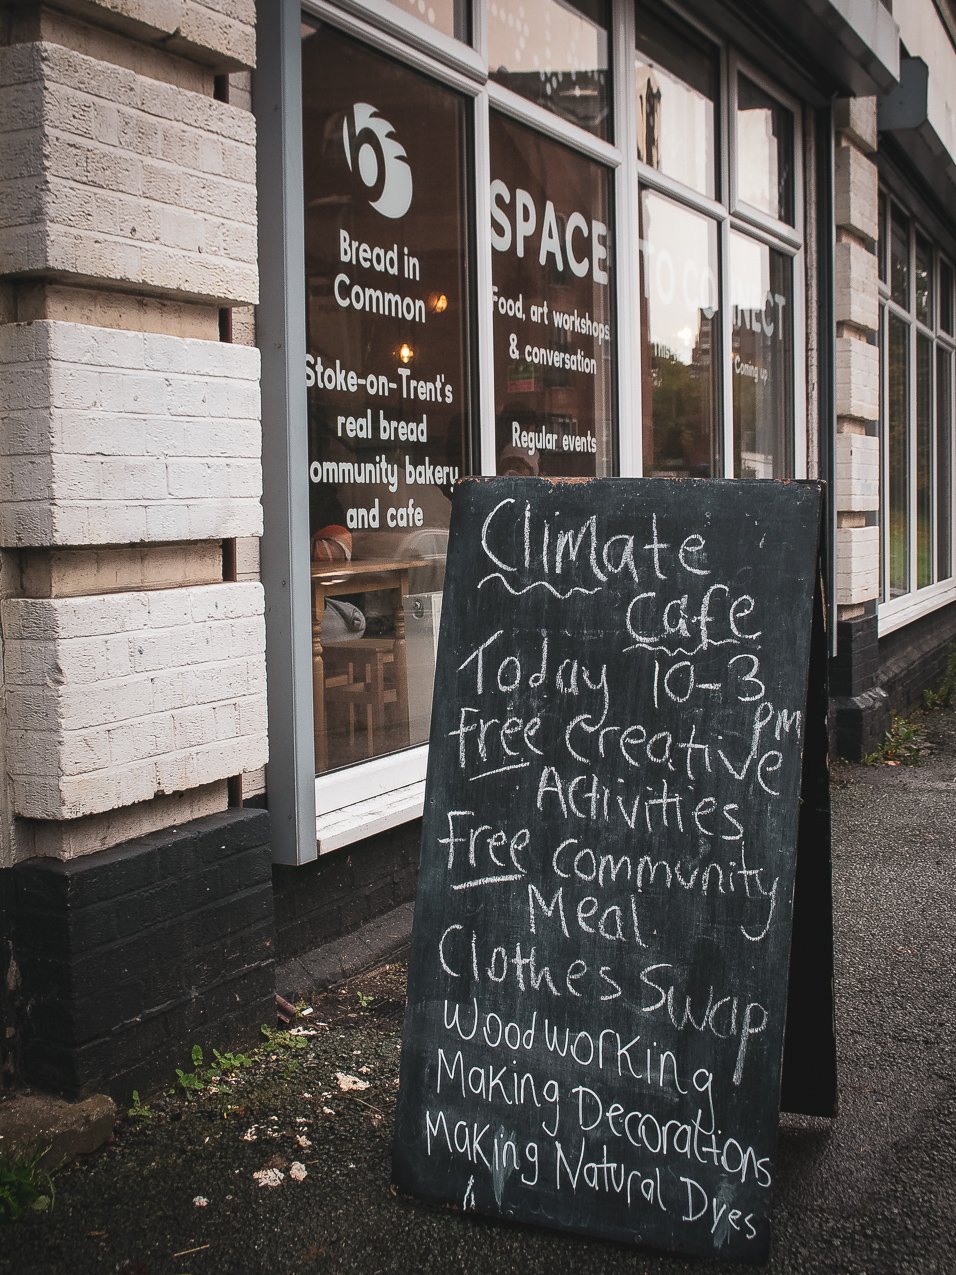 Bread in
Common
Stoke-on-Trent's
real bread
ommunity bakery
and cafe
SPACE
Food, art workshops
& conversation
Regular events
TO CONNECT
Coming up
Climate
Cafe
Today 10-3
pm
Free Creative
Activities
Free Community
Meal
Clothes Swap
Woodworking
Making Decorations
Making Natural Dyes